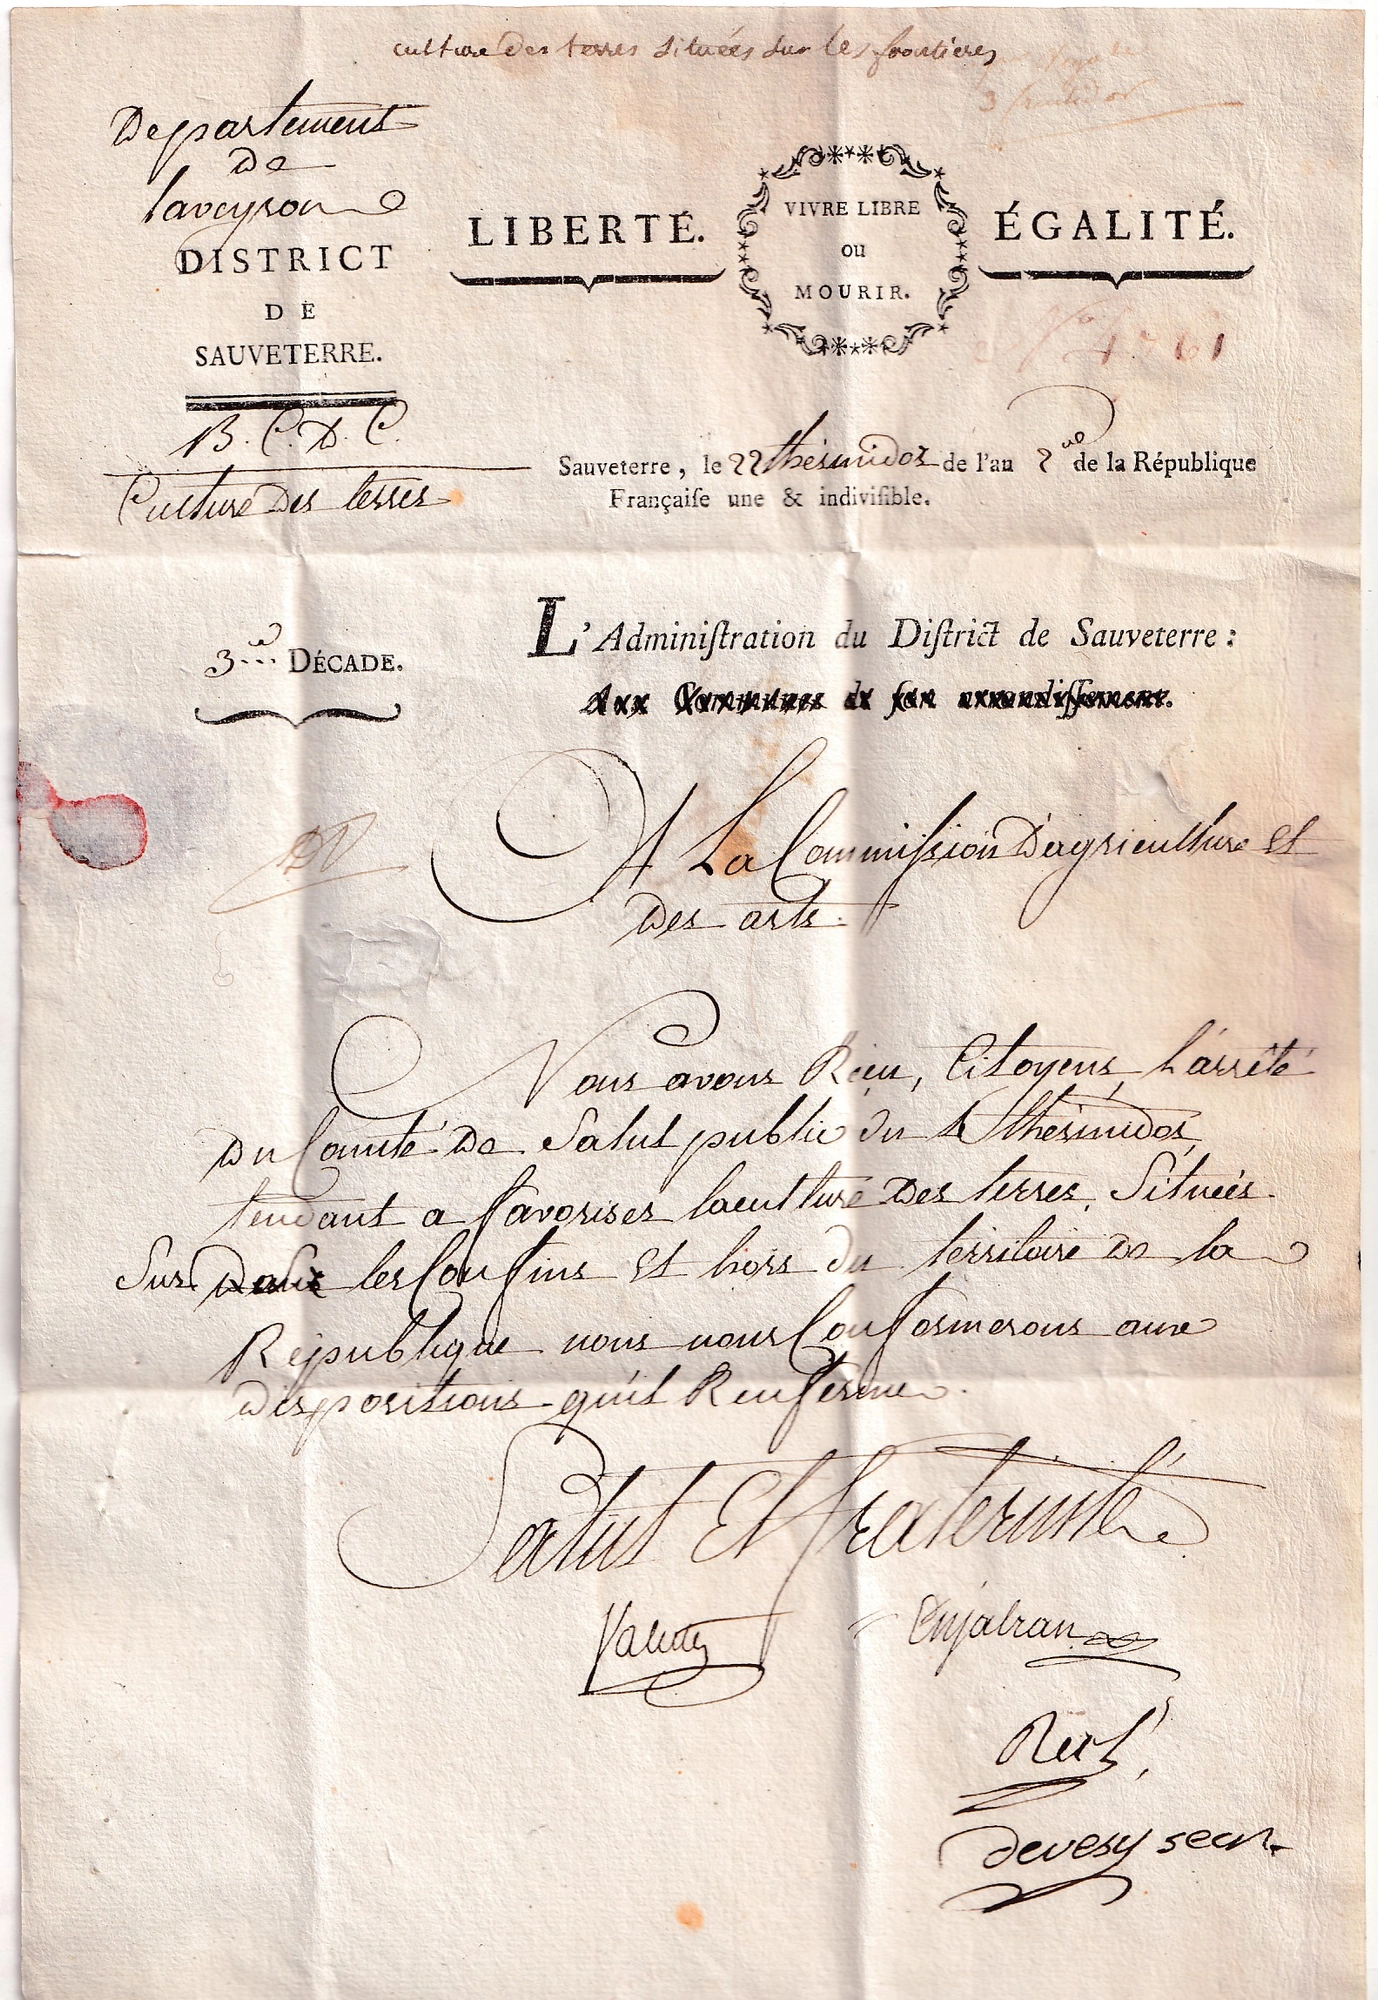 culture des terres situées sur les frontieres
3 fructidor
Departement
de
laveyron
DISTRICT
DE
SAUVETERRE.
LIBERTÉ.
VIVRE LIBRE
ou
MOURIR.
ÉGALITÉ.
B. C. D. C.
Culture des terres
Sauveterre, le 22 thermidor de l'an 2 me de la République
Françaiſe une & indiviſible.
3... e DÉCADE.
L'Adminiſtration du Diſtrict de Sauveterre :
Aux Communes de ſon arrondiſſement.
A La Commiſsion D'agriculture et
Des arts.
Nous avons Reçu, Citoyens, l'arrêté
Du Comité De Salut public du thermidor
tendant a favoriser laculture Des terres, Situées
Sur les Confins Et hors du territoire De la
République nous nous Conformerons aux
Dispositions qu'il Renferme.
Salut Et fraternité
Enjalran
devesy secr